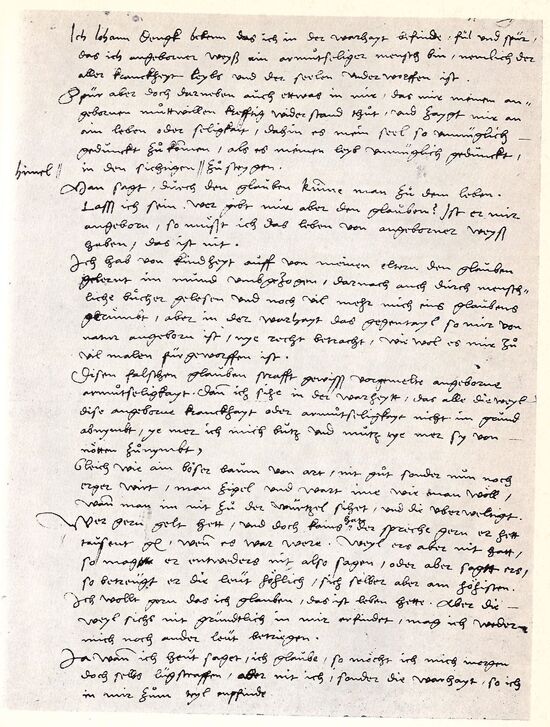 Ich Johann Dengk beken das ich in der warhayt befinde, fül und spür,
das ich angeborner weyß ein armuetseliger mensch bin, nemlich der
aller kranckheyt leybs und der seelen underworffen ist.
Spür aber doch darneben auch etwas in mir, das mir meinen an-
gebornen muttwillen krefftig widerstand thut, und zaygt mir an
ain leben oder seligkait, dahin es mein seel so unmüglich
gedünckt zu kommen, als es meinen leyb unmüglich gedünckt,
himel // in den sichtigen // zu steygen.
Man sagt, durch den glauben kumme man zu dem leben.
Lass ich sein. Wer gibt mir aber den glauben? Ist er mir
angeborn, so müßt ich das leben von angeborner weyß
haben, das ist nit.
Ich hab von kindheyt auff von meinen eltern den glauben
gelernt im mund umbgezogen, darnach auch durch mensch-
liche bücher gelesen und noch vil mehr mich eins glaubens
gerümbt, aber in der warhayt das gegentayl so mir von
natur angeborn ist, nye recht betracht, wie wol es mir zu
vil malen fürgeworffen ist.
Disen falschen glauben strafft gewiss vorgemelte angeborne
armutseligkayt. Dan ich sihe in der warheyt, das alle die weyl
dise angeborne kranckhayt oder armutseligkayt nicht im grund
abnymbt, ye mer ich mich butz und mutz, ye mer sy von
nötten zunymbt,
Gleich wie ain böser baum von art, nit gut sonder nun noch
erger wirt, man zigel und wart ime wie man wöll,
wan man im nit zu der wurtzel sihet, und die überwelzgt.
Wer gern gelt hett, und doch kains hat, der spreche gern er hett
taüsent gl, wen es war were. Weyl ers aber nit hatt,
so mag er entweders nit also sagen, oder aber sagt ers,
so betreugt er die leüt höhlich, sich selber aber am höhisten.
Ich wollt gern das ich glauben, das ist leben hette. Aber die
weyl sichs nit gründtlich in mir erfindet, mag ich weder
mich noch ander leüt betriegen.
Ja wann ich heüt saget, ich glaube, so möcht ich mich morgen
doch selbs lügstraffen, aber nit ich, sonder die warhayt, so ich
in mir zum teyl empfinde